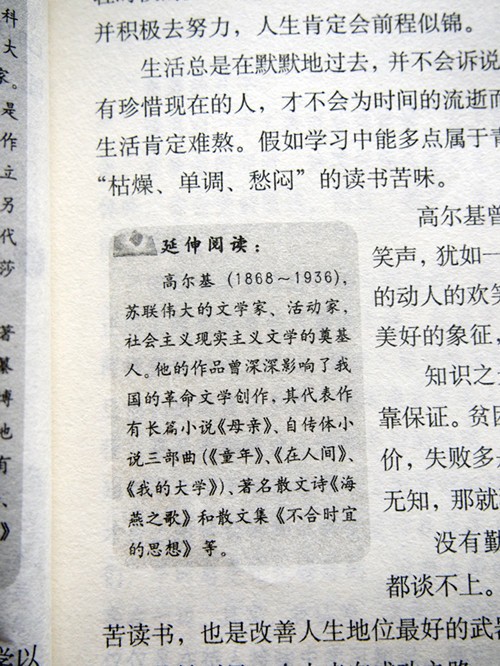 并积极去努力，人生肯定会前程似锦。
生活总是在默默地过去，并不会诉说
有珍惜现在的人，才不会为时间的流逝而
生活肯定难熬。假如学习中能多点属于青
“枯燥、单调、愁闷”的读书苦味。
延伸阅读：
高尔基（1868～1936），
苏联伟大的文学家、活动家，
社会主义现实主义文学的奠基
人。他的作品曾深深影响了我
国的革命文学创作，其代表作
有长篇小说《母亲》、自传体小
说三部曲（《童年》、《在人间》、
《我的大学》）、著名散文诗《海
燕之歌》和散文集《不合时宜
的思想》等。
高尔基曾
笑声，犹如一
的动人的欢笑
美好的象征，
知识之
靠保证。贫困
价，失败多
无知，那就
没有勤
都谈不上。
苦读书，也是改善人生地位最好的武器
科
大
家。
是
作
立
另
代
莎
著
纂
博
也
有
、
》
学以